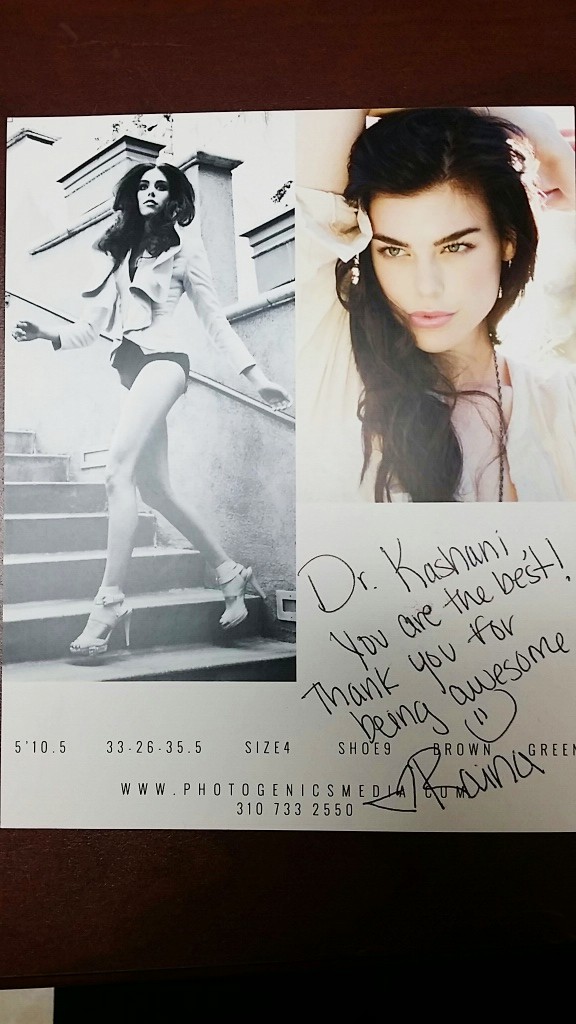 Dr. Kashani,
You are the best!
Thank you for
being awesome
Raina
5'10.5 33-26-35.5 SIZE4 SHOE9 BROWN GREEN
WWW.PHOTOGENICSMEDIA.COM
310 733 2550